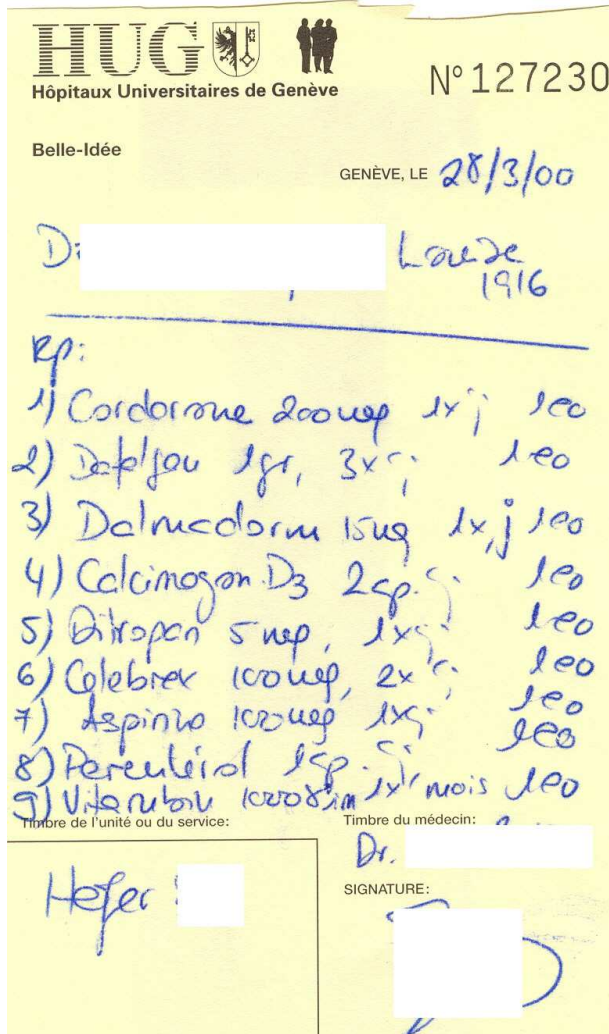 HUG
Hôpitaux Universitaires de Genève
N° 127230
Belle-Idée
GENÈVE, LE 28/3/00
Louise
1916
Rp:
1) Cordarone 200mg 1x/j 1eo
2) Dafalgan 1gr, 3x/j 1eo
3) Dalmadorm 15mg 1x/j 1eo
4) Calcimagon D3 2cp/j 1eo
5) Ditropan 5mg, 1x/j 1eo
6) Celebrex 100mg, 2x/j 1eo
7) 100mg 1x/j 1eo
8) 1cp/j 1eo
9) 1x/mois 1eo
Timbre de l'unité ou du service:
Timbre du médecin:
Dr.
Hefer
SIGNATURE: